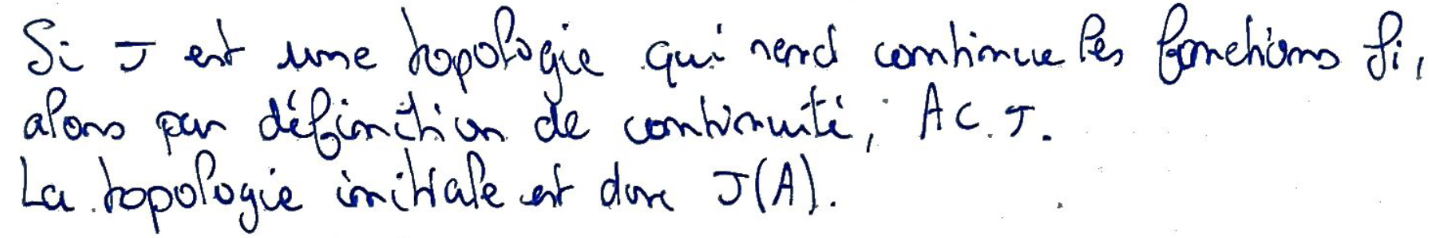 Si J est une topologie qui rend continue les fonctions fi,
alors par définition de continuité, A ⊂ J.
La topologie initiale est donc J(A).